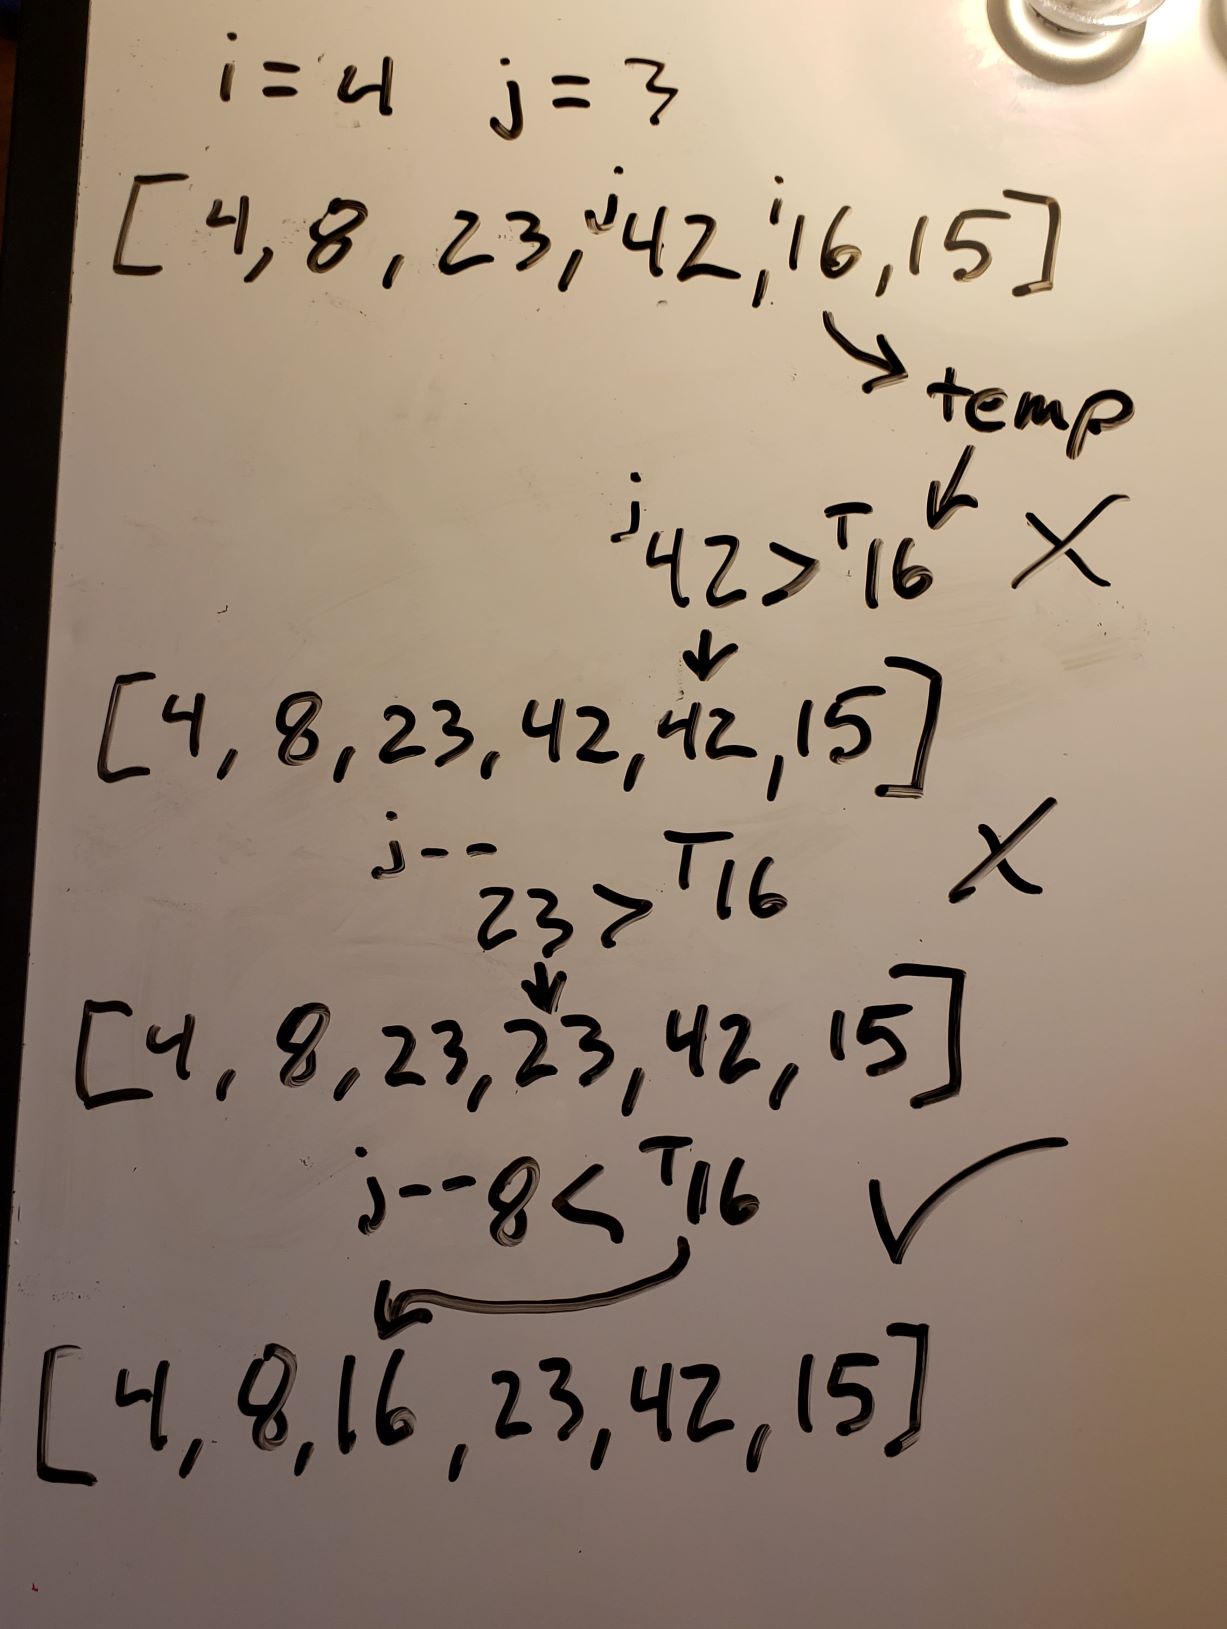 i = 4 j = 3
[ 4, 8, 23, j42, i16, 15 ]
temp
j42 > T16 X
[ 4, 8, 23, 42, 42, 15 ]
j--
23 > T16 X
[ 4, 8, 23, 23, 42, 15 ]
j-- 8 < T16 ✓
[ 4, 8, 16, 23, 42, 15 ]